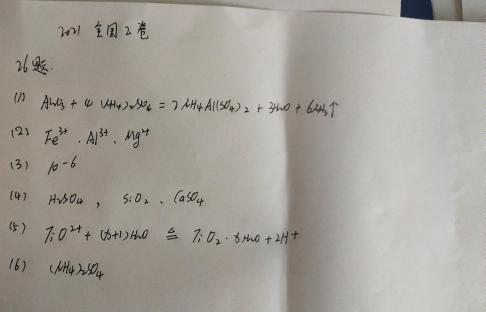 2021 全国2卷
26题.
(1) Al2O3 + 4(NH4)2SO4 = 2NH4Al(SO4)2 + 3H2O + 6NH3↑
(2) Fe3+、Al3+、Mg2+
(3) 10-6
(4) H2SO4, SiO2、CaSO4
(5) TiO2+ + (x+1)H2O ≜ TiO2·xH2O + 2H+
(6) (NH4)2SO4